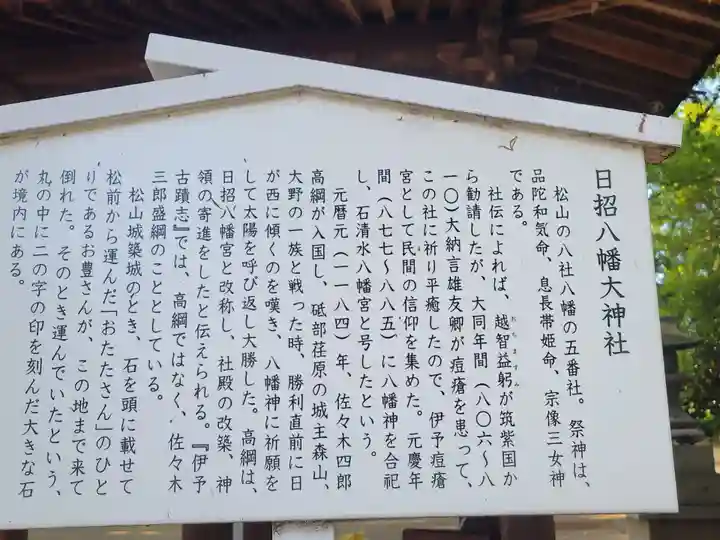 日招八幡大神社
松山の八社八幡の五番社。祭神は、
品陀和気命、息長帯姫命、宗像三女神
である。
社伝によれば、越智益躬が筑紫国か
おちますみ
ら勧請したが、大同年間（八〇六〜八
一〇）大納言雄友卿が痘瘡を患って、
この社に祈り平癒したので、伊予痘瘡
宮として民間の信仰を集めた。元慶年
間（八七七〜八八五）に八幡神を合祀
し、石清水八幡宮と号したという。
元暦元（一一八四）年、佐々木四郎
高綱が入国し、砥部荘原の城主森山、
大野の一族と戦った時、勝利直前に日
が西に傾くのを嘆き、八幡神に祈願を
して太陽を呼び返し大勝した。高綱は、
日招八幡宮と改称し、社殿の改築、神
領の寄進をしたと伝えられる。『伊予
古蹟志』では、高綱ではなく、佐々木
三郎盛綱のこととしている。
松山城築城のとき、石を頭に載せて
松前から運んだ「おたたさん」のひと
りであるお豊さんが、この地まで来て
倒れた。そのとき運んでいたという、
丸の中に二の字の印を刻んだ大きな石
が境内にある。